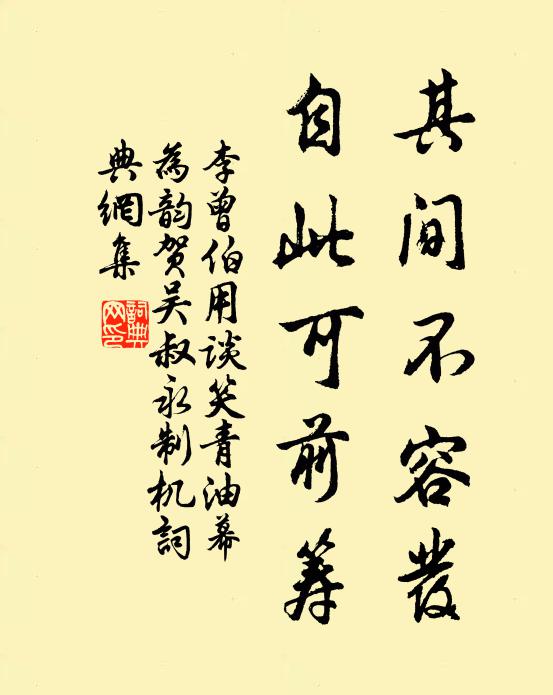 其间不容發
自此可前筹
李曾伯用谈笑青油幕
為韵贺吴叔永制机詞
典網集
詞典網印